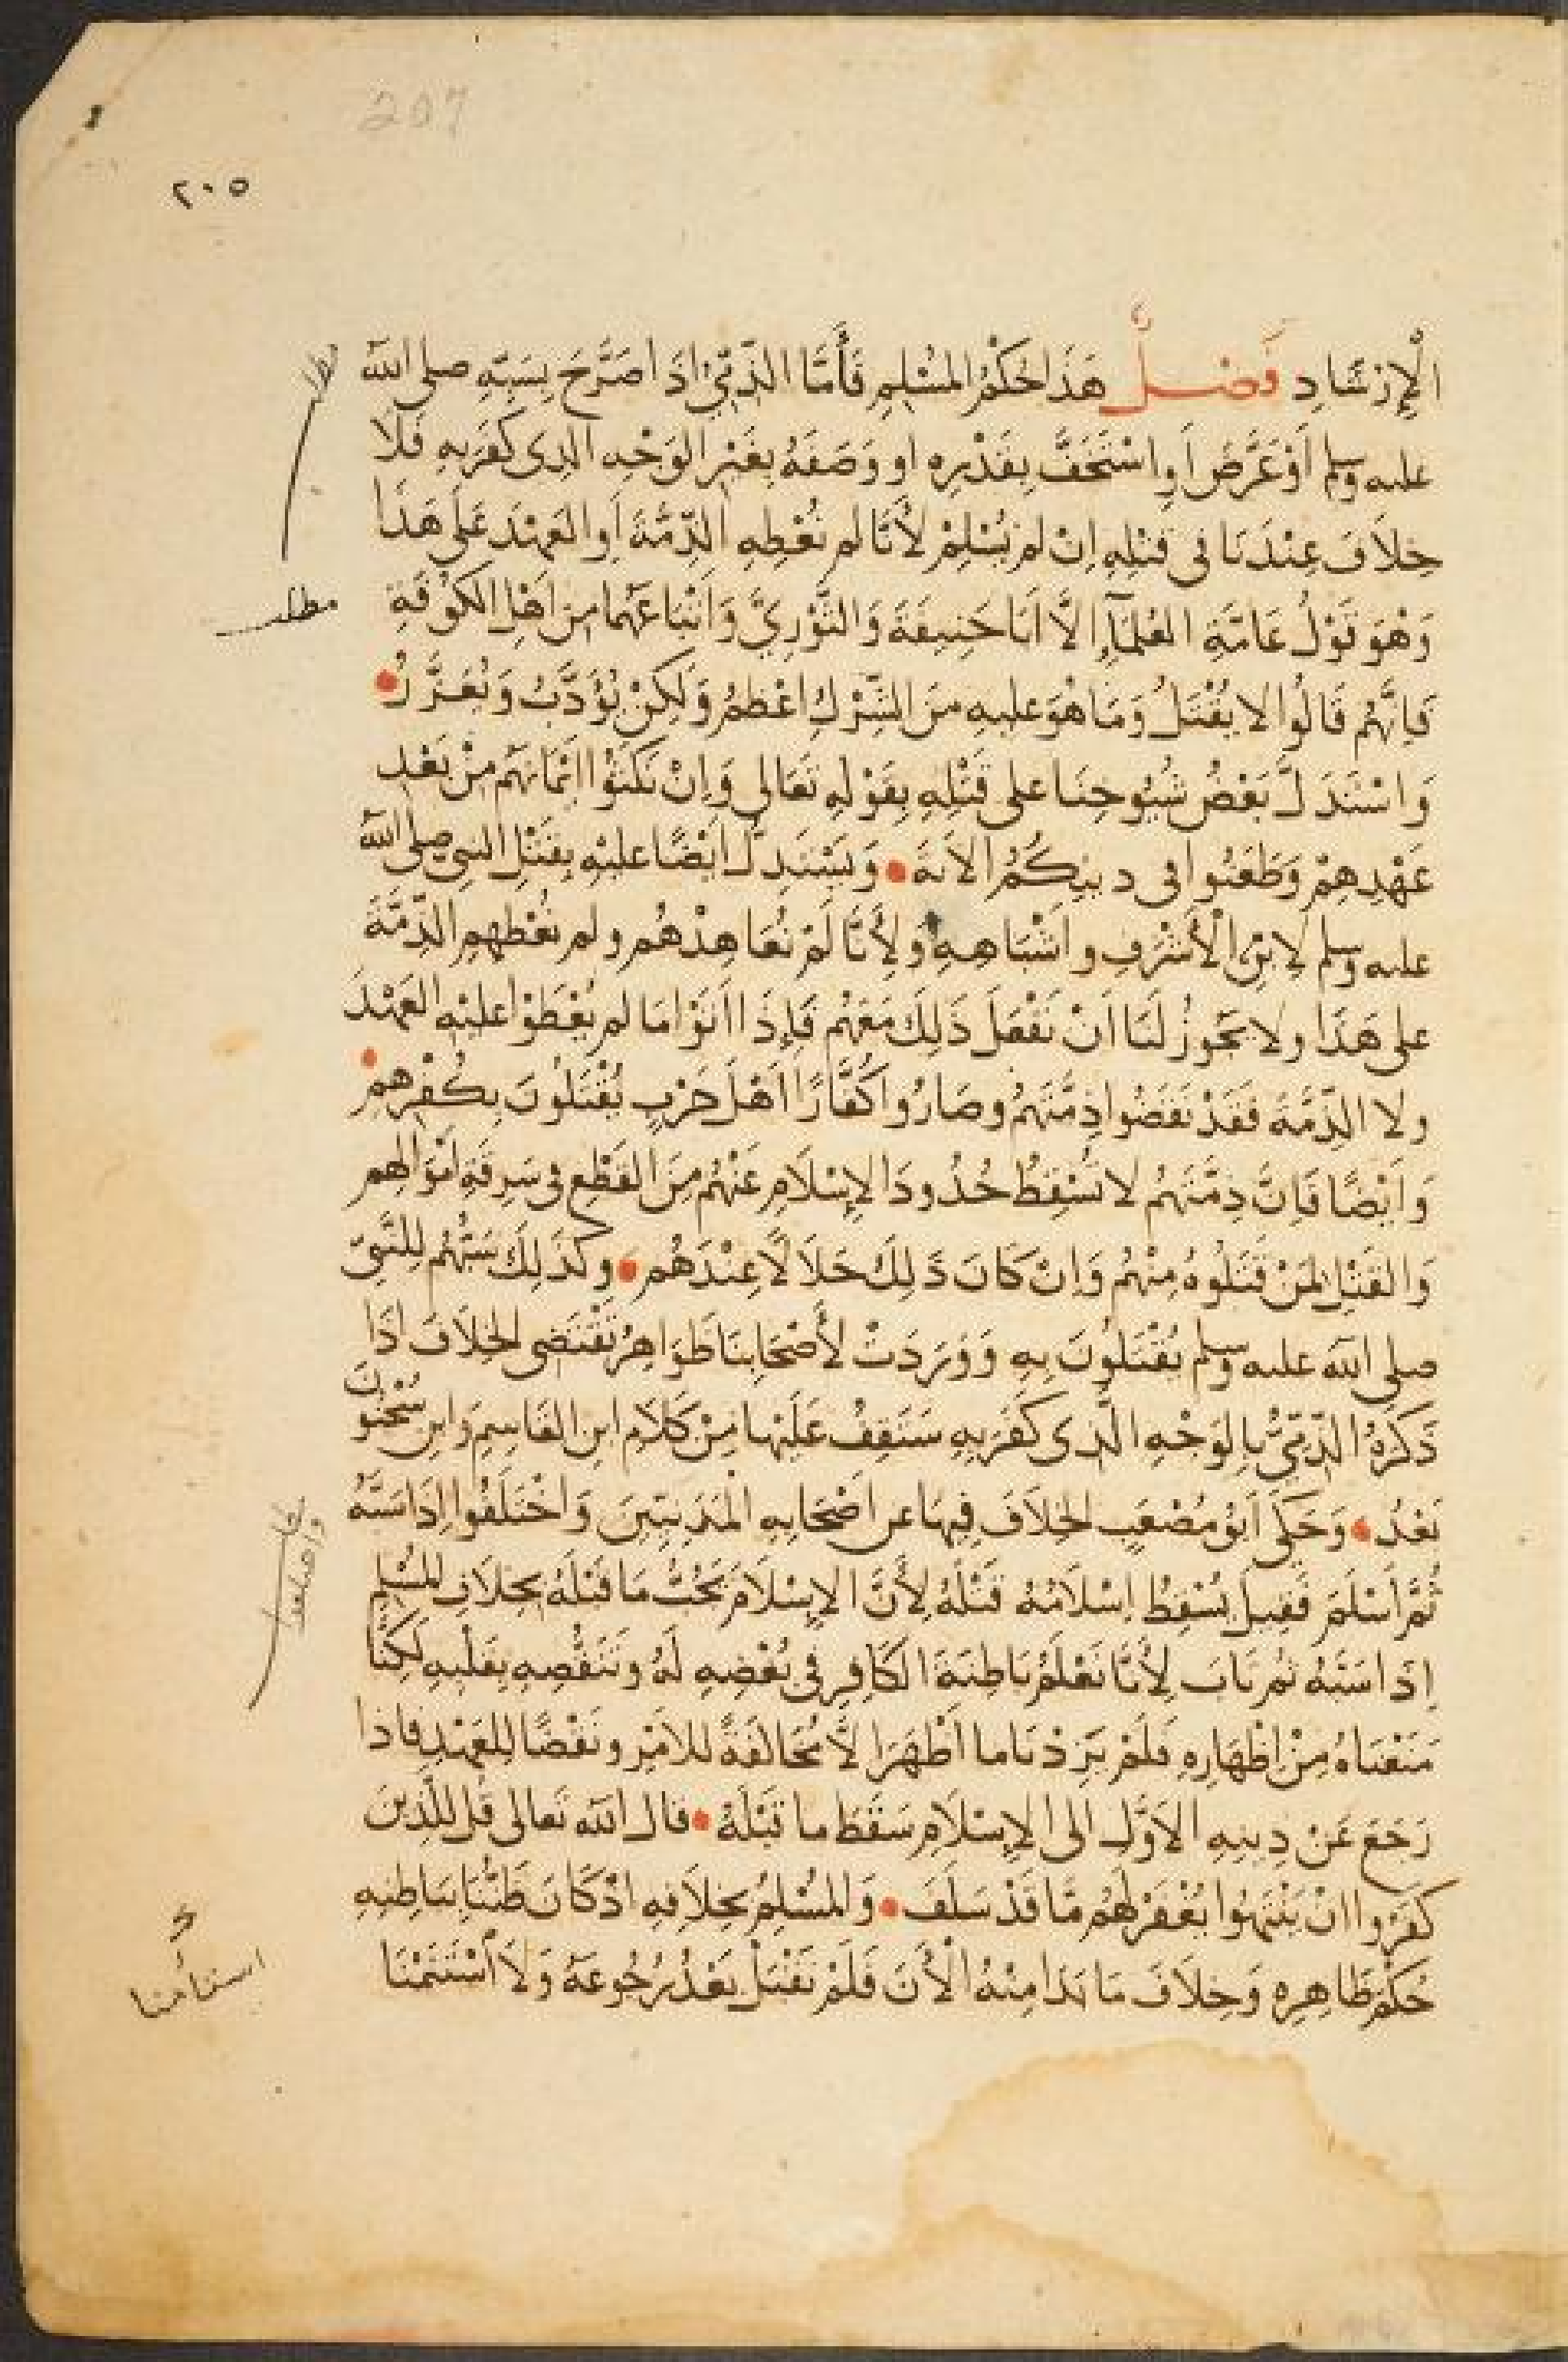 207
٢٠٥
الْإِرْشَادِ فَصْلٌ هَذَا حُكْمُ الْمُسْلِمِ فَأَمَّا الذِّمِّيُّ إِذَا صَرَّحَ بِسَبِّهِ صلى الله
عليه وسلم أَوْ عَرَّضَ أَوِ اسْتَخَفَّ بِقَدْرِهِ او وَصَفَهُ بِغَيْرِ الوَجْهِ الذِى كَفَرَ بِهِ فَلَا
خِلَافَ عِنْدَنَا فى قَتْلِهِ اِنْ لم يُسْلِمْ لأَنَّا لم نُعْطِهِ الذِّمَّةَ أَوِ العَهْدَ عَلَى هَذَا
وَهْوَ قَوْلُ عَامَّةِ العُلَمَآءِ الَّا اَبَا حَنِيفَةَ وَالثَّوْرِيَّ وَاَتْبَاعَهُمَا مِنْ اَهْلِ الكُوْفَةِ
فَاِنَّهُم قَالُوا لا يُقْتَلُ وَمَا هْوَ عليه مِنَ الشِّرْكِ اعْظَمُ وَلَكِنْ يُؤَدَّبُ وَيُعَزَّرُ
وَاسْتَدَلَّ بَعْضُ شُيُوخِنَا على قَتْلِهِ بِقَوْلِهِ تَعَالى وَاِنْ نَكَثُوْا اَيْمَانَهُم مِنْ بَعْدِ
عَهْدِهِمْ وَطَعَنُوا فى دِينِكُمُ الآيَةَ وَيُسْتَدَلُّ اَيْضًا عليْهِ بِقَتْلِ النبى صلى الله
عليه وسلم لِابْنِ الْأَشْرَفِ واَشْبَاهِهِ وَلِأَنَّا لَمْ نُعَاهِدْهُم ولم نُعْطِهِم الذِّمَّةَ
على هَذَا ولا يَجُوزُ لَنَا اَنْ نَفْعَلَ ذَلِكَ مَعَهُم فَإِذَا اَتَوْا مَا لم يُعْطَوْا عليْهِ العَهْدَ
ولا الذِّمَّةَ فَقَدْ نَقَضُوا ذِمَّتَهُمْ وصَارُوا كُفَّارًا اَهْلَ حَرْبٍ يُقْتَلُونَ بِكُفْرِهِمِ
وَاَيْضًا فَاِنَّ ذِمَّتَهُمْ لا تُسْقِطُ حُدُودَ الإِسْلَامِ عَنْهُمْ مِنَ القَطْعِ فى سَرِقَةِ اَمْوَالِهِم
وَالقَتْلِ لمَنْ قَتَلُوهُ مِنْهُمْ وَاِنْ كَانَ ذَلِكَ حَلَالًا عِنْدَهُم وكَذَلِكَ سَبُّهُم لِلنَّبِيِّ
صلى الله عليه وسلم يُقْتَلُونَ بِهِ وَوَرَدَتْ لأَصْحَابِنَا ظَوَاهِرُ تَقْتَضِى الخِلَافَ اذَا
ذَكَرَهُ الذِّمِّيُّ بِالوَجْهِ الَّذِى كَفَرَ بِهِ سَتَقِفُ عَلَيْهَا مِنْ كَلَامِ ابنِ القَاسِمِ وَابنِ سُحْنُونَ
بَعْدُ وَحَكَى اَبُوْ مُصْعَبٍ الخِلَافَ فِيهَا عن اَصْحَابِهِ الْمَدَنِيِّينَ وَاخْتَلَفُوا اِذَا سَبَّهُ
ثُمَّ اَسْلَمَ فَقِيلَ يُسْقِطُ اِسْلَامُهُ قَتْلَهُ لِأَنَّ الإِسْلَامَ يَجُبُّ مَا قَبْلَهُ بِخِلَافِ المُسْلِمِ
اِذَا سَبَّهُ ثم تَابَ لِأَنَّا نَعْلَمُ بَاطِنَةَ الكَافِرِ فى بُغْضِهِ لَهُ وتَنَقُّصِهِ بِقَلْبِهِ لَكِنَّا
مَنَعْنَاهُ مِنْ اِظْهَارِهِ فَلَمْ يَزِدْنَا ما اَظْهَرَ الَّا مُخَالَفَةً للاَمْرِ ونَقْضًا لِلعَهْدِ فاذا
رَجَعَ عَنْ دِينِهِ الأَوَّلِ الى الإِسْلَامِ سَقَطَ ما قَبْلَهُ قال الله تعالى قُل لِلَّذِينَ
كَفَرُوا اِنْ يَنْتَهُوا يُغْفَرْ لَهُم مَّا قَدْ سَلَفَ وَالمُسْلِمُ بِخِلَافِهِ اِذْ كَانَ ظَنُّنَا بِبَاطِنِهِ
حُكْمَ ظَاهِرِهِ وَخِلَافَ مَا بَدَا مِنْهُ الْأَنَ فَلَمْ نَقْبَلْ بَعْدُ رُجُوعَهُ وَلَا اَسْتَنَمْنَا
مطلب
استنامنا